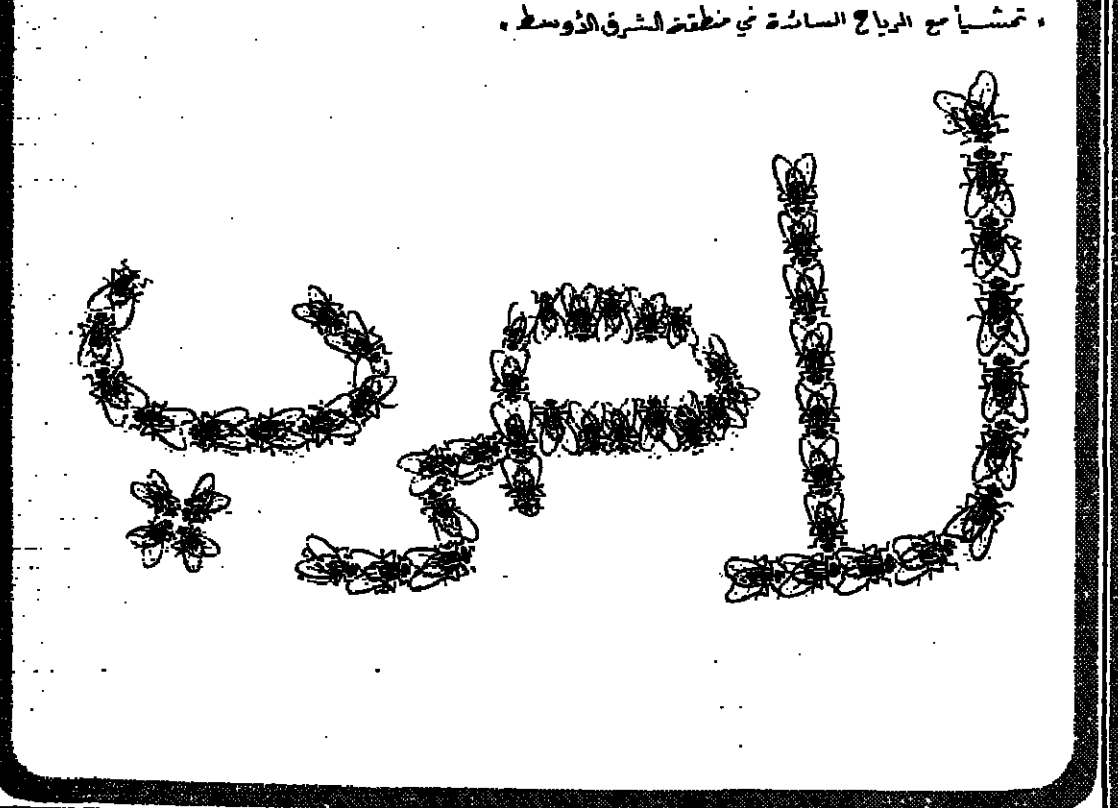 ، تمشياً مع الرياح السائدة في منطقة الشرق الأوسط .
لا حرب